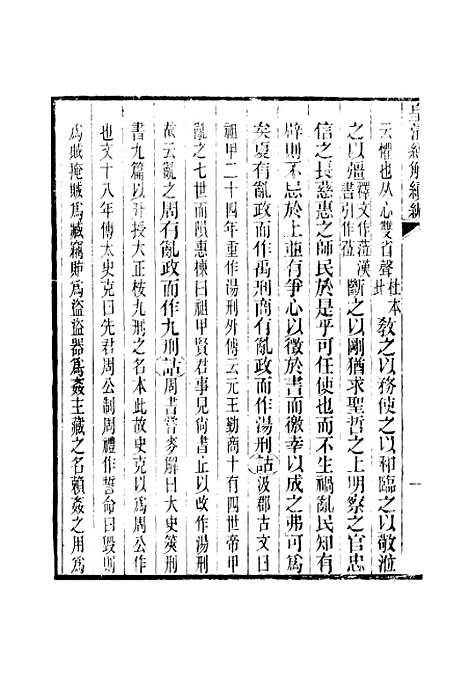 皇清經解續編
云懼也从心雙省聲杜本此教之以務使之以和臨之以敬涖
之以彊釋文作莅漢書引作莅斷之以剛猶求聖哲之上明察之官忠
信之長慈惠之師民於是乎可任使也而不生禍亂民知有
辟則不忌於上並有爭心以徵於書而徼幸以成之弗可爲
矣夏有亂政而作禹刑商有亂政而作湯刑詁汲郡古文曰
祖甲二十四年重作湯刑外傳云元王勤商十有四世帝甲
亂之七世而隕惠棟曰祖甲賢君事見尙書止以改作湯刑
故云亂之周有亂政而作九刑詁周書嘗麥解曰大史筴刑
書九篇以升授大正桉九刑之名本此故史克以爲周公作
也文十八年傳太史克曰先君周公制周禮作誓命曰毀則
爲賊掩賊爲藏竊賄爲盜盜器爲姦主藏之名賴姦之用爲